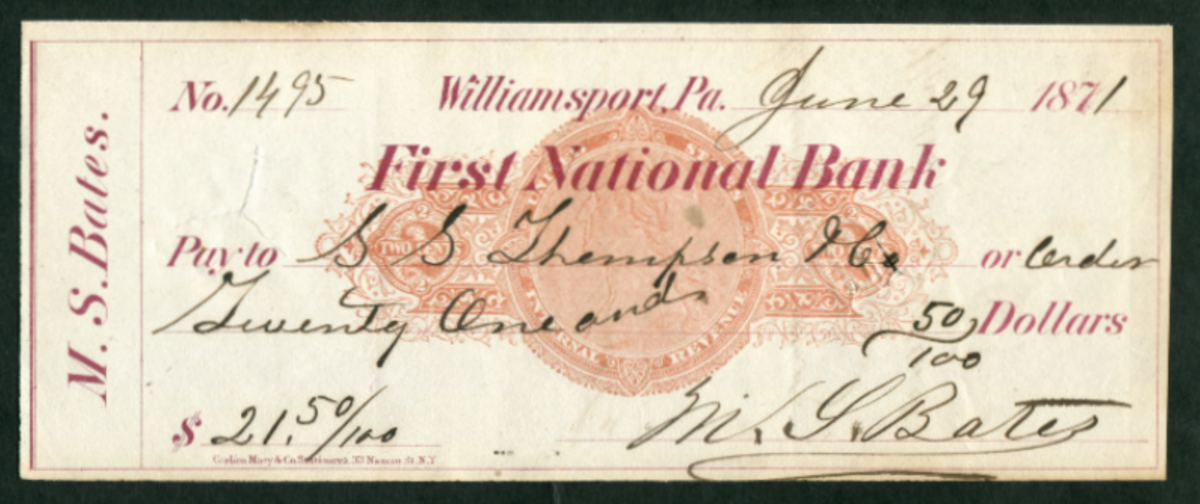 M. S. Bates.
No. 1495 Williamsport, Pa. June 29 1871
First National Bank
UNITED STATES
TWO CENTS
Pay to S S Thompson & Co or Order
Twenty One and 50/100 Dollars
INTERNAL REVENUE
$ 21.50/100 M. S. Bates
& Co. Stationers, 33 Nassau St. N.Y.